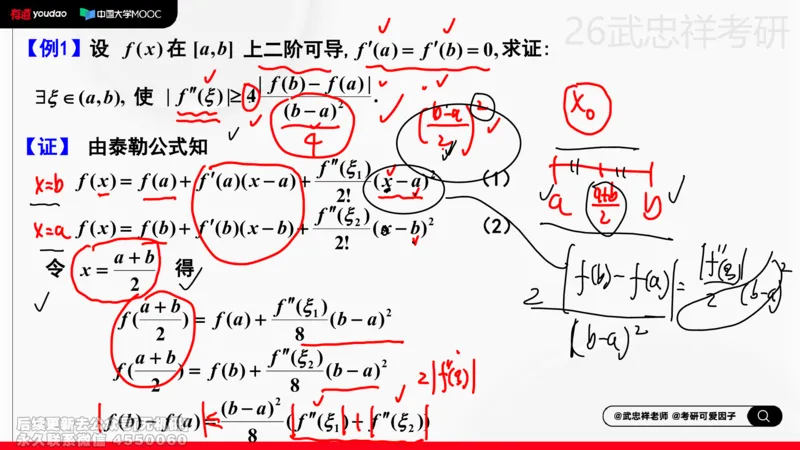 有道youdao 中国大学MOOC
26武忠祥考研
【例1】设 f(x)在 [a,b] 上二阶可导, f′(a) = f′(b) = 0, 求证:
∃ξ∈(a,b), 使 |f″(ξ)| ≥ 4 |f(b) − f(a)| / (b−a)² .
4
(b-a / 2)²
x₀
【证】 由泰勒公式知
x=b f(x) = f(a) + f′(a)(x−a) + f″(ξ₁)/2! (x−a)² (1)
a a+b/2 b
x=a f(x) = f(b) + f′(b)(x−b) + f″(ξ₂)/2! (x−b)² (2)
令 x = (a+b)/2 得
2 |f(b) − f(a)| / (b-a)² = |f″(ξ)| / 2 (b-a)²
f((a+b)/2) = f(a) + f″(ξ₁)/8 (b−a)²
f((a+b)/2) = f(b) + f″(ξ₂)/8 (b−a)²
2|f″(ξ)|
|f(b) − f(a)| ≤ (b−a)²/8 (|f″(ξ₁)| + |f″(ξ₂)|)
@武忠祥老师 @考研可爱因子
永久联系微信 4550060